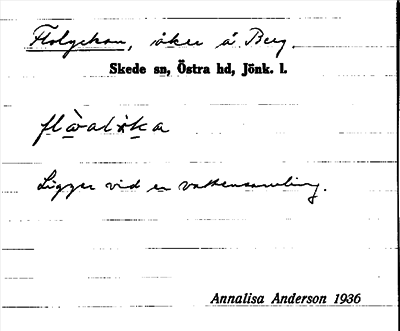 Flolyckan, åker å Berg.
Skede sn, Östra hd, Jönk. l.
Ligger vid en vattensamling.
Annalisa Anderson 1936